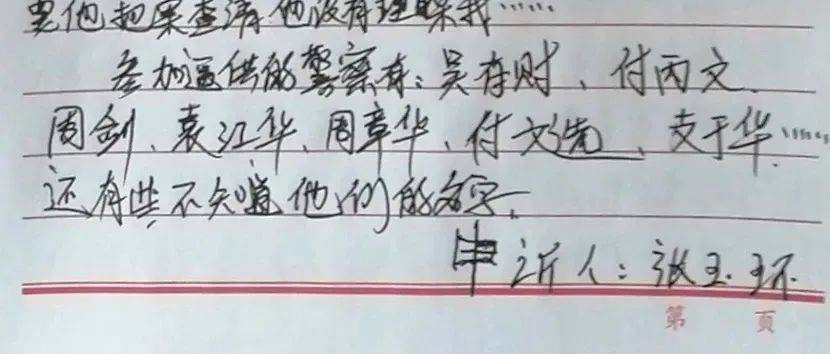 要他把案查清他没有理睬我……
参加逼供的警察有：吴存财、付丙文、
周剑、袁江华、周章华、付文选、支于华……
还有些不知道他们的名字。
申诉人：张玉环
第 页